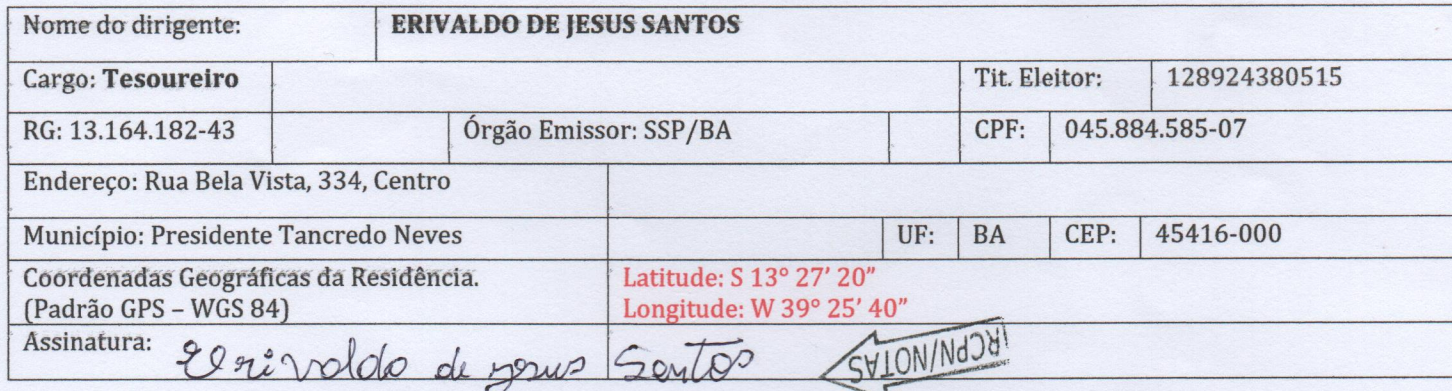 Nome do dirigente: ERIVALDO DE JESUS SANTOS
Cargo: Tesoureiro Tit. Eleitor: 128924380515
RG: 13.164.182-43 Órgão Emissor: SSP/BA CPF: 045.884.585-07
Endereço: Rua Bela Vista, 334, Centro
Município: Presidente Tancredo Neves UF: BA CEP: 45416-000
Coordenadas Geográficas da Residência. Latitude: S 13° 27’ 20”
(Padrão GPS – WGS 84) Longitude: W 39° 25’ 40”
Assinatura: Erivaldo de jesus Santos
RCPN/NOTAS